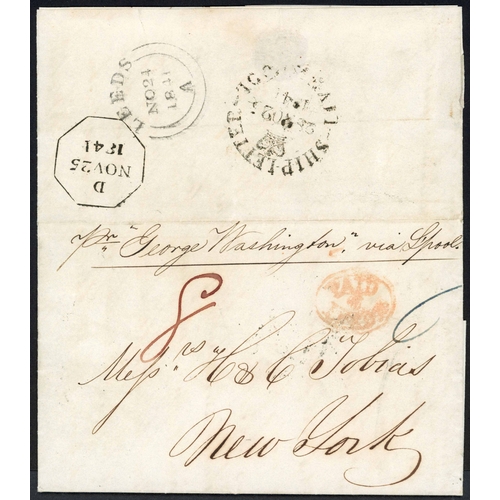 LEEDS
NO 24
1841
A
SHIP LETTER
D
NOV 25
1841
Pr "George Washington" via Lpool
PAID
8
Messrs H & C Tobias
New York